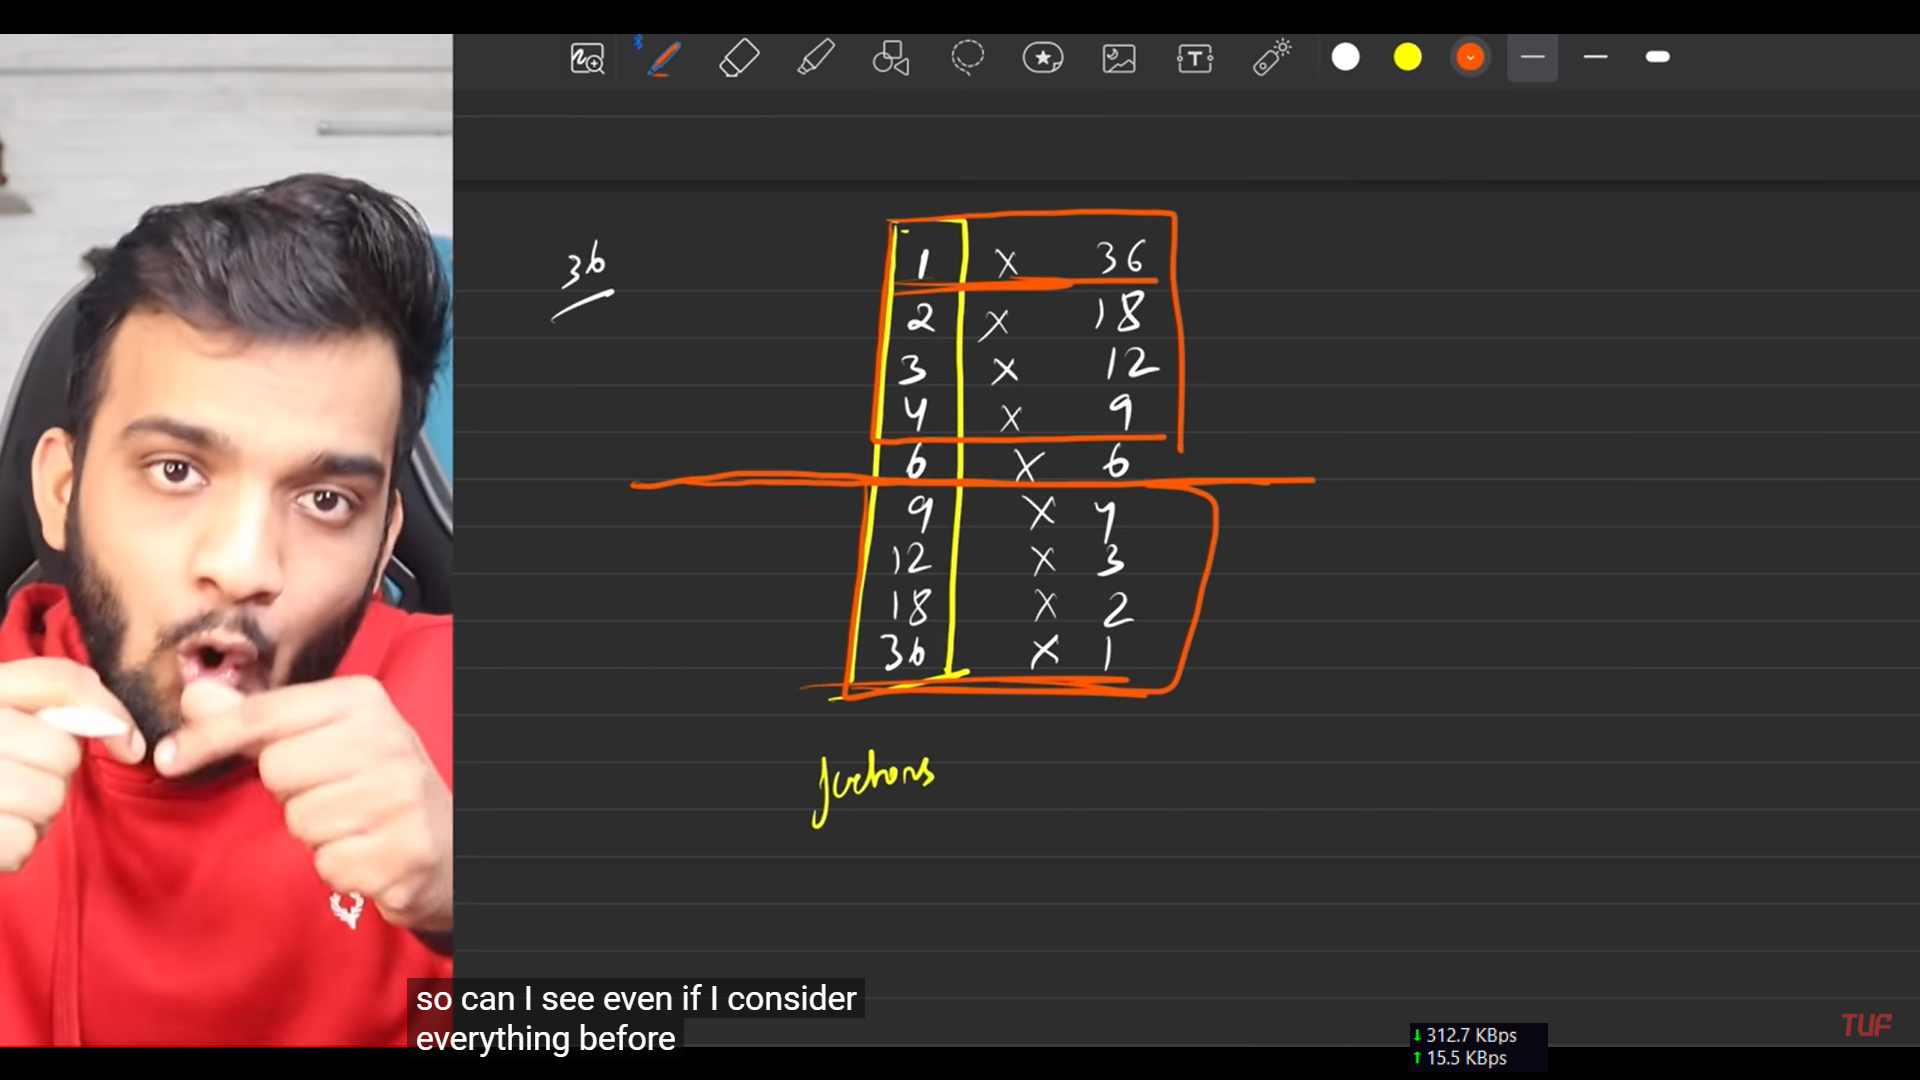 T
36
1 x 36
2 x 18
3 x 12
4 x 9
6 x 6
9 x 4
12 x 3
18 x 2
36 x 1
factors
so can I see even if I consider
everything before
↓ 312.7 KBps
↑ 15.5 KBps
TUF